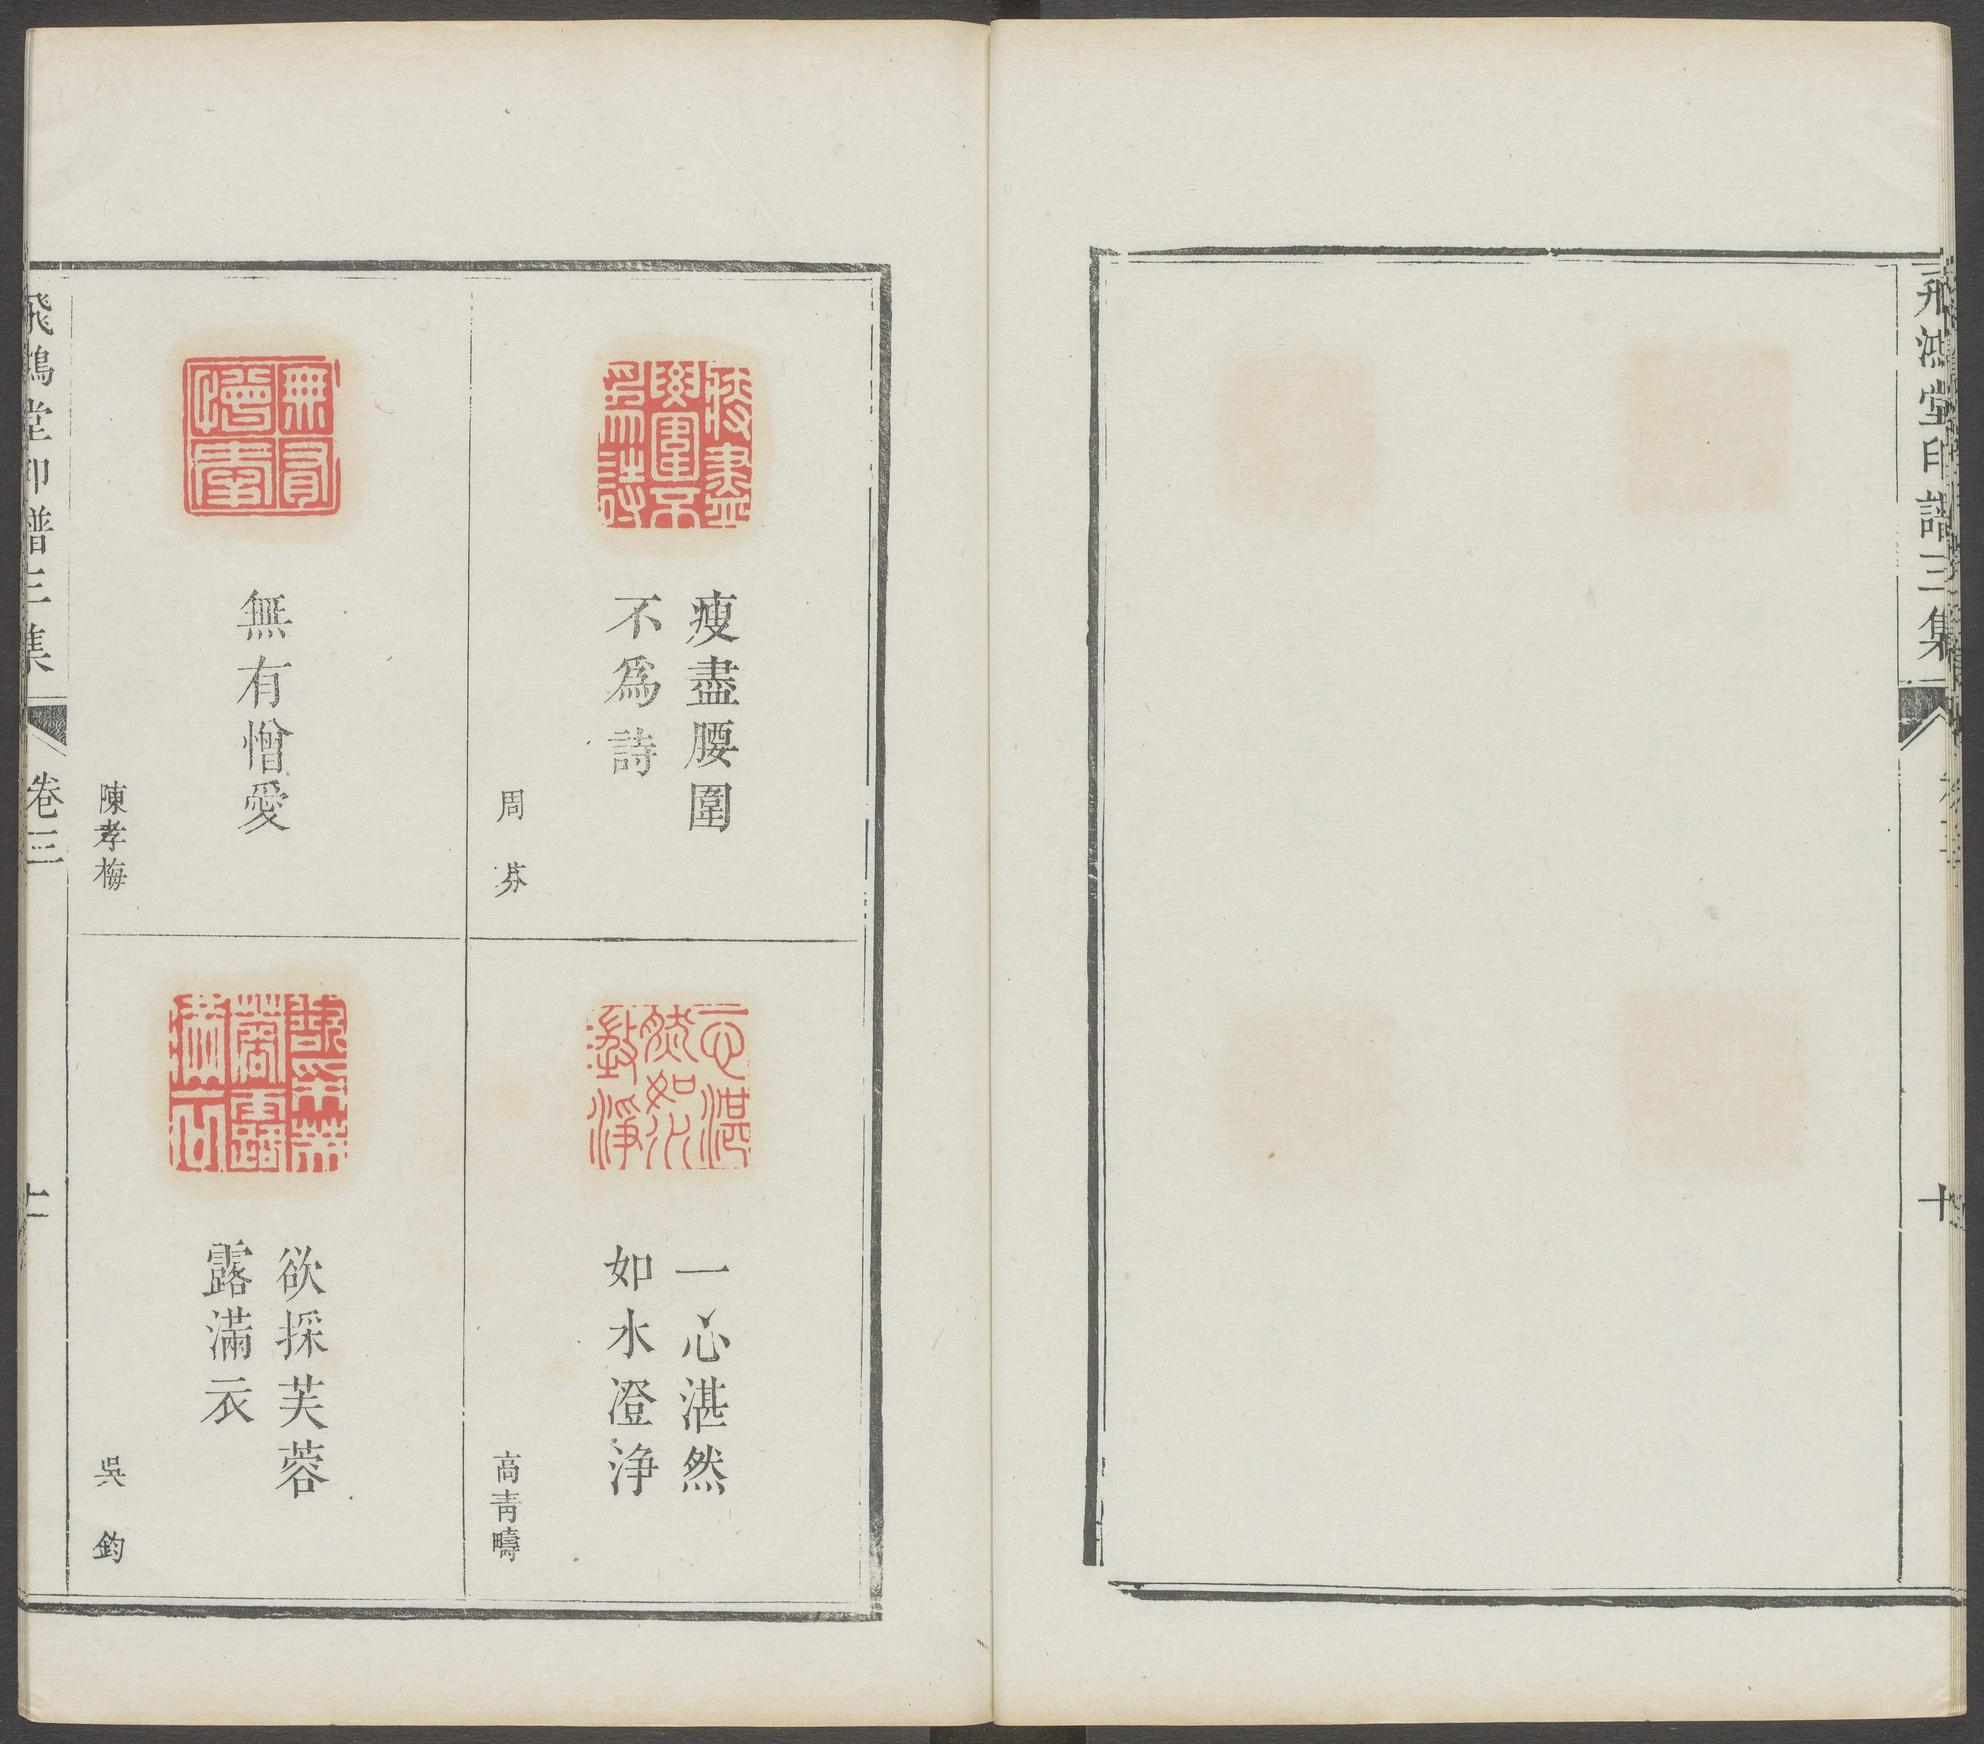 飛鴻堂印譜三集
卷三
十
瘦盡腰圍
不爲詩
周芬
一心湛然
如水澄浄
高青疇
無有憎愛
陳孝梅
欲採芙蓉
露滿衣
吳鈞
飛鴻堂印譜三集
卷三
十一